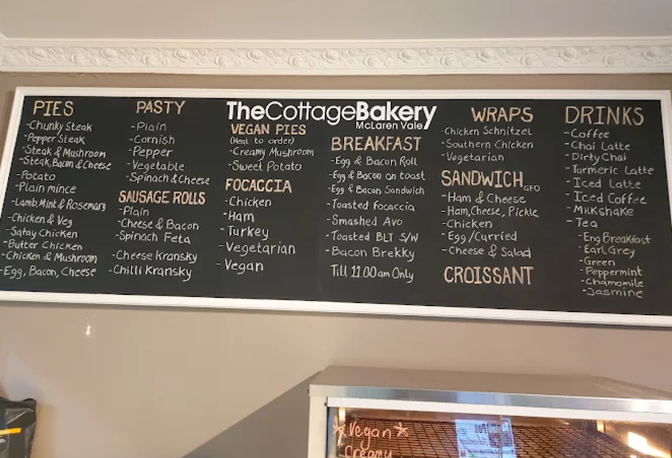 PIES
-Chunky Steak
-Pepper Steak
-Steak & Mushroom
-Steak, Bacon & Cheese
-Potato
-Plain mince
-Lamb, Mint & Rosemary
-Chicken & Veg
-Satay Chicken
-Butter Chicken
-Chicken & Mushroom
-Egg, Bacon, Cheese
PASTY
-Plain
-Cornish
-Pepper
-Vegetable
-Spinach & Cheese
SAUSAGE ROLLS
-Plain
-Cheese & Bacon
-Spinach Feta
-Cheese Kransky
-Chilli Kransky
TheCottageBakery
McLaren Vale
VEGAN PIES
(Heat to order)
-Creamy Mushroom
-Sweet Potato
FOCACCIA
-Chicken
-Ham
-Turkey
-Vegetarian
-Vegan
BREAKFAST
-Egg & Bacon Roll
-Egg & Bacon on toast
-Egg & Bacon Sandwich
-Toasted focaccia
-Smashed Avo
-Toasted BLT S/W
-Bacon Brekky
Till 11:00am Only
WRAPS
-Chicken Schnitzel
-Southern Chicken
-Vegetarian
SANDWICH GFO
-Ham & Cheese
-Ham, Cheese, Pickle
-Chicken
-Egg/Curried
-Cheese & Salad
CROISSANT
DRINKS
-Coffee
-Chai Latte
-Dirty Chai
-Turmeric Latte
-Iced Latte
-Iced Coffee
-Milkshake
-Tea
-Eng Breakfast
-Earl Grey
-Green
-Peppermint
-Chamomile
-Jasmine
*Vegan*
Creamy